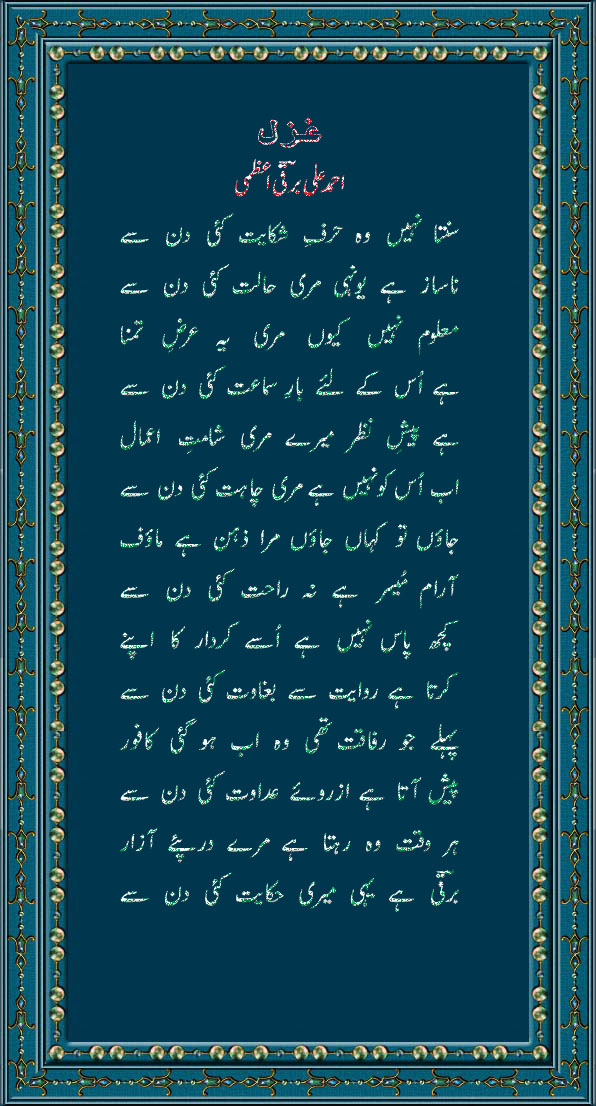 غزل
احمد علی برقؔی اعظمی
سنتا نہیں وہ حرفِ شکایت کئی دن سے
ناساز ہے یونہی مری حالت کئی دن سے
معلوم نہیں کیوں مری یہ عرضِ تمنا
ہے اُس کے لئے بارِ سماعت کئی دن سے
ہے پیشِ نظر میرے مری شامتِ اعمال
اب اُس کو نہیں ہے مری چاہت کئی دن سے
جاؤں تو کہاں جاؤں مرا ذہن ہے ماؤف
آرام مُیسر ہے نہ راحت کئی دن سے
کچھ پاس نہیں ہے اُسے کردار کا اپنے
کرتا ہے روایت سے بغاوت کئی دن سے
پہلے جو رفاقت تھی وہ اب ہو گئی کافور
پیش آتا ہے ازروئے عداوت کئی دن سے
ہر وقت وہ رہتا ہے مرے درپئے آزار
برقؔی ہے یہی میری حکایت کئی دن سے